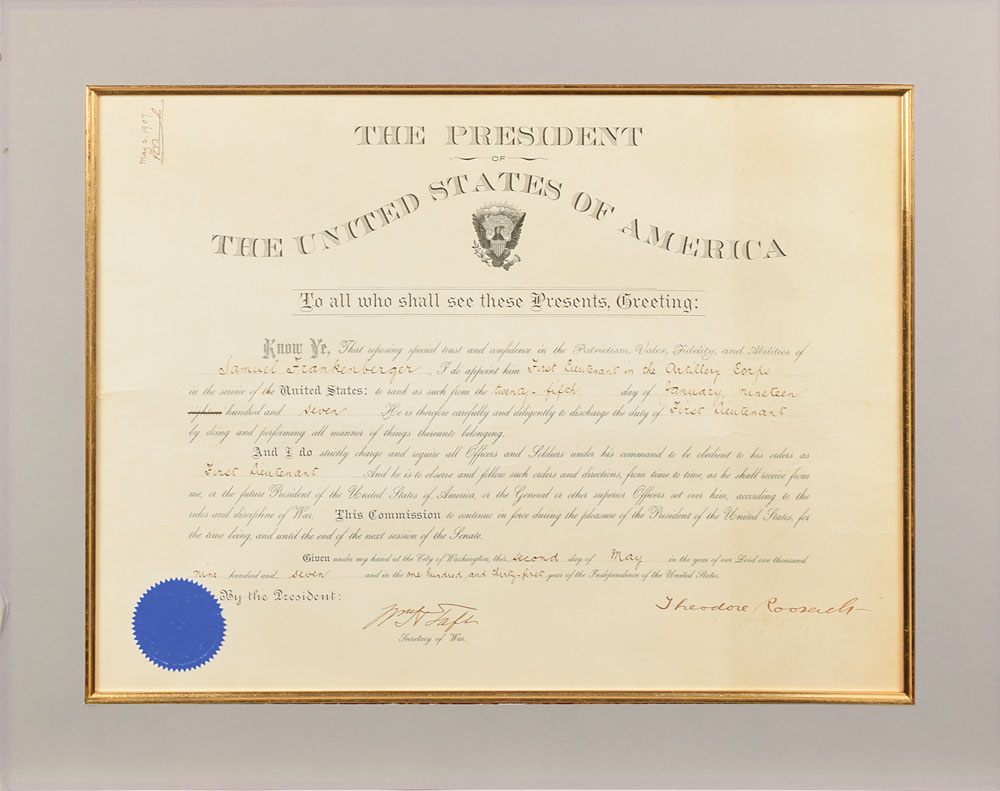 May 2 1907
THE PRESIDENT
OF
THE UNITED STATES OF AMERICA
To all who shall see these Presents, Greeting:
Know Ye, That reposing special trust and confidence in the Patriotism, Valor, Fidelity, and Abilities of
Samuel Frankenberger, I do appoint him First Lieutenant in the Artillery Corps
in the service of the United States: to rank as such from the twenty-fifth day of January, nineteen
eighteen hundred and seven He is therefore carefully and diligently to discharge the duty of First Lieutenant
by doing and performing all manner of things thereunto belonging.
And I do strictly charge and require all Officers and Soldiers under his command to be obedient to his orders as
First Lieutenant And he is to observe and follow such orders and directions, from time to time, as he shall receive from
me, or the future President of the United States of America, or the General or other superior Officers set over him, according to the
rules and discipline of War. This Commission to continue in force during the pleasure of the President of the United States, for
the time being, and until the end of the next session of the Senate.
Given under my hand at the City of Washington, this second day of May in the year of our Lord one thousand
nine hundred and seven and in the one hundred and thirty-first year of the Independence of the United States.
By the President:
Theodore Roosevelt
Wm H Taft
Secretary of War.